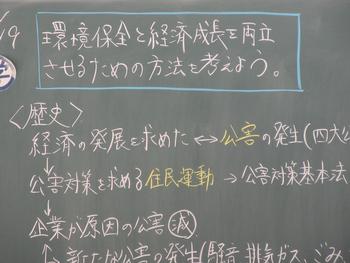 1/9
環境保全と経済成長を両立
させるための方法を考えよう。
〈歴史〉
経済の発展を求めた ↔ 公害の発生(四大公
↓
公害対策を求める住民運動 → 公害対策基本法
↓
企業が原因の公害 減
↓ 新たな公害の発生(騒音、排気ガス、ごみ